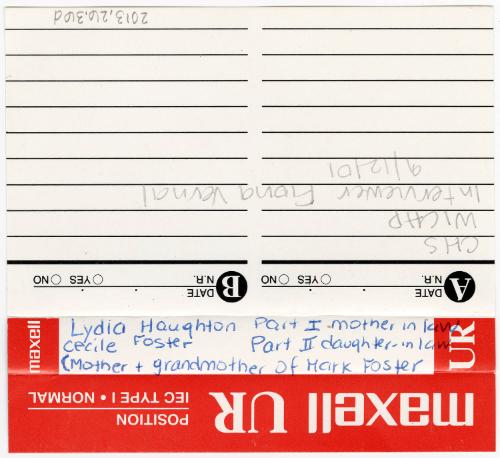 maxell UR
POSITION
IEC TYPE I • NORMAL
maxell
Lydia Haughton Part I mother in law
Cecile Foster Part II daughter-in-law
(Mother + grandmother of Mark Foster
UR
A DATE
N.R. YES NO
B DATE
N.R. YES NO
CHS
WICHP
Interviewer Fiona Vernal
9/12/01
2013.26.36d